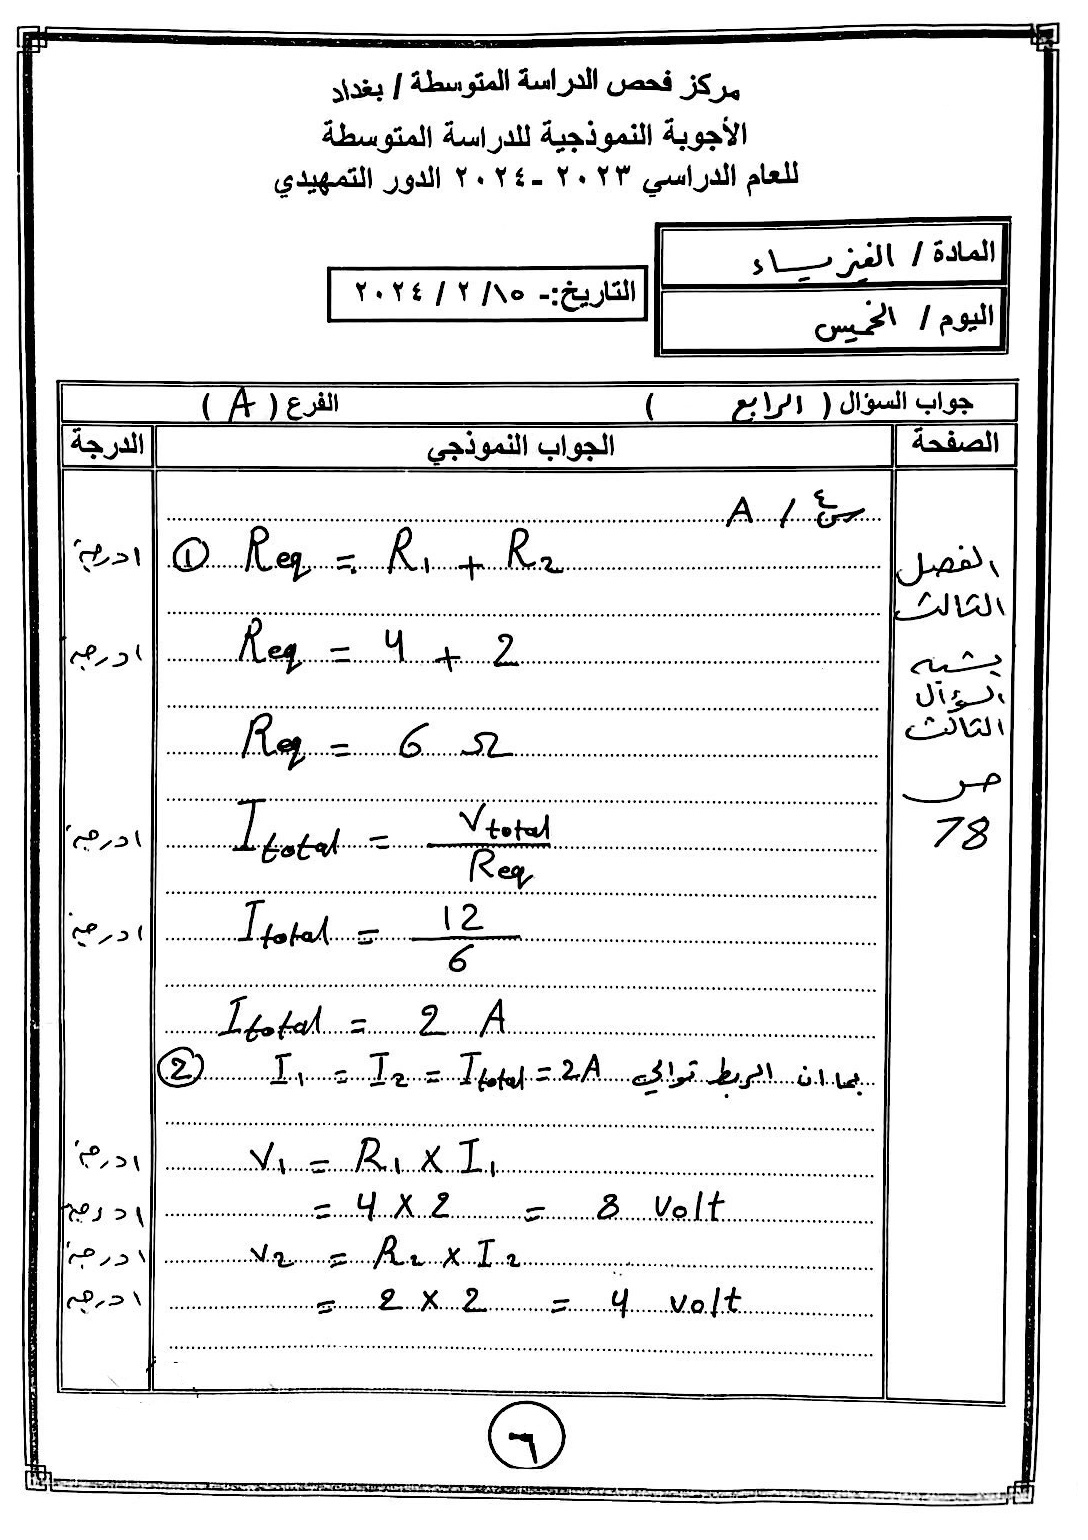 مركز فحص الدراسة المتوسطة / بغداد
الأجوبة النموذجية للدراسة المتوسطة
للعام الدراسي ٢٠٢٣ - ٢٠٢٤ الدور التمهيدي
المادة / الفيزياء
اليوم / الخميس
التاريخ:- ١٥/ ٢ / ٢٠٢٤
جواب السؤال ( الرابع ) الفرع ( A )
الصفحة الجواب النموذجي الدرجة
س٤ / A
الفصل
الثالث
يشبه
السؤال
الثالث
ص
78
① Req = R1 + R2 ١درجة
Req = 4 + 2 ١درجة
Req = 6 Ω
Itotal = Vtotal / Req ١درجة
Itotal = 12 / 6 ١درجة
Itotal = 2 A
② I1 = I2 = Itotal = 2A بما ان الربط توالي
V1 = R1 × I1 ١درجة
= 4 × 2 = 8 Volt ١درجة
V2 = R2 × I2 ١درجة
= 2 × 2 = 4 volt ١درجة
٦